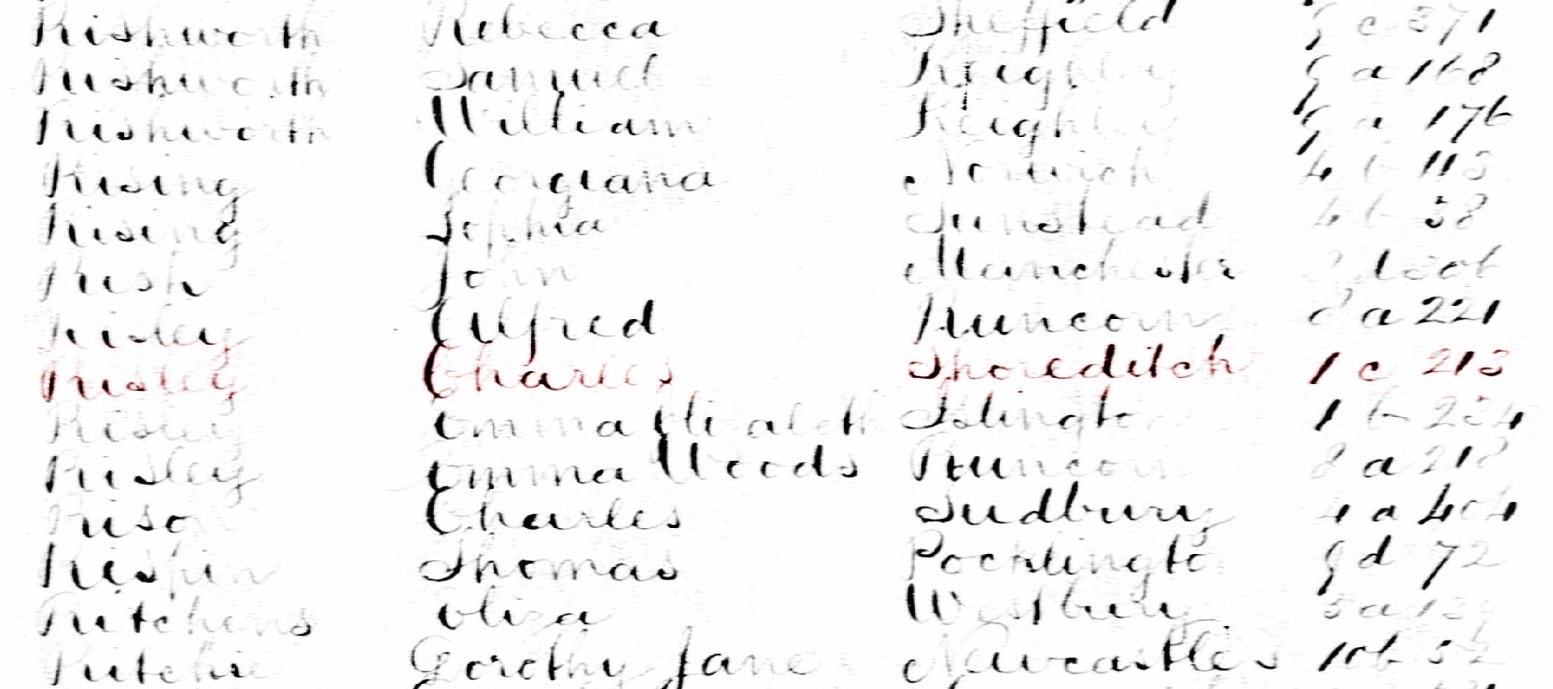 Rishworth Rebecca Sheffield 9 c 371
Rishworth Samuel Keighley 9 a 168
Rishworth William Keighley 9 a 176
Rising Georgiana Norwich 4 b 113
Rising Sophia Tunstead 4 b 38
Rish John Manchester 8 d
Risley Alfred Runcorn 8 a 221
Risley Charles Shoreditch 1 c 213
Risley Emma Elizabeth Islington 1 b 234
Risley Emma Woods Runcorn 8 a 218
Riso Charles Sudbury 4 a 404
Rispin Thomas Pocklington 9 d 72
Ritchens Eliza Westbury 5 a
Ritchie Dorothy Jane Newcastle 10 b 52